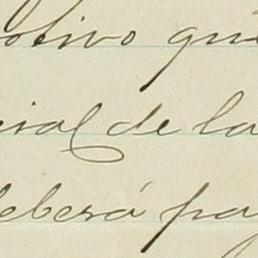 otivo que
cial de la
deberá pa